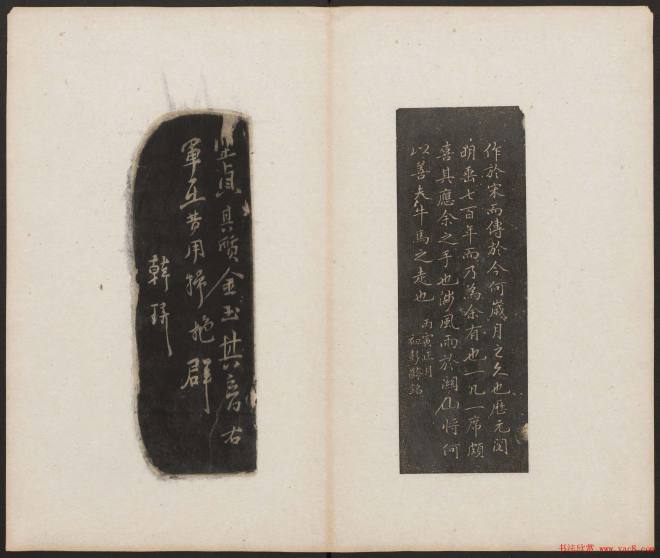 作於宋而傳於今何歲月之久也歷元閱
明垂七百年而乃為余有也一几一席頗
喜其應余之手也涉風雨於湖山將何
以善夫牛馬之走也
丙寅正月
銘
堅貞其質金玉其音右
軍
用
絕群
韓
书法欣赏 www.yac8.com